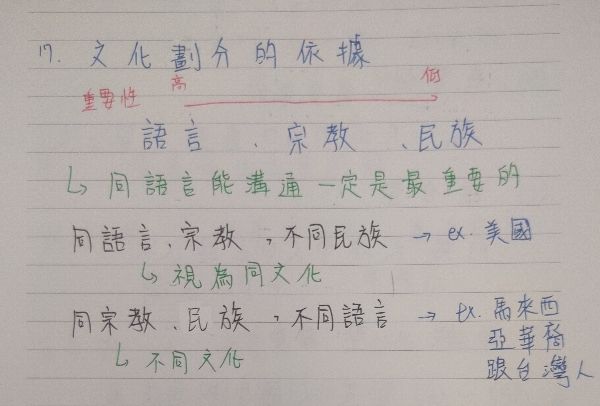 17. 文化劃分的依據
重要性 高 → 低
語言、宗教、民族
↳ 同語言能溝通一定是最重要的
同語言、宗教，不同民族 → ex. 美國
↳ 視為同文化
同宗教、民族，不同語言 → ex. 馬來西
亞華裔
↳ 不同文化
跟台灣人